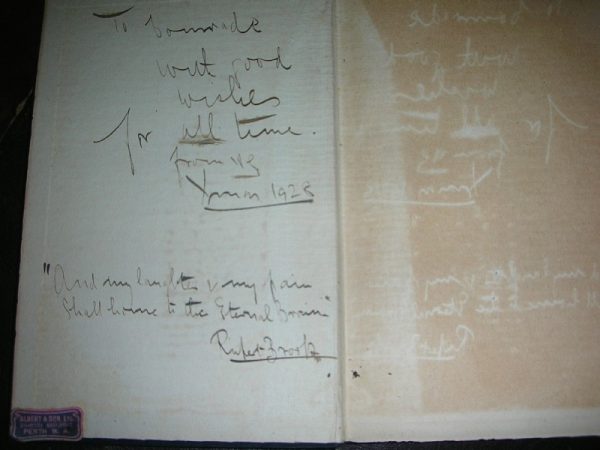 To Comrade
with good
wishes
for all time.
from
1928
"And my laughter & my pain
Shall home to the Eternal Brain"
Rupert Brooke
ALBERT & SON, LTD.
PERTH W. A.